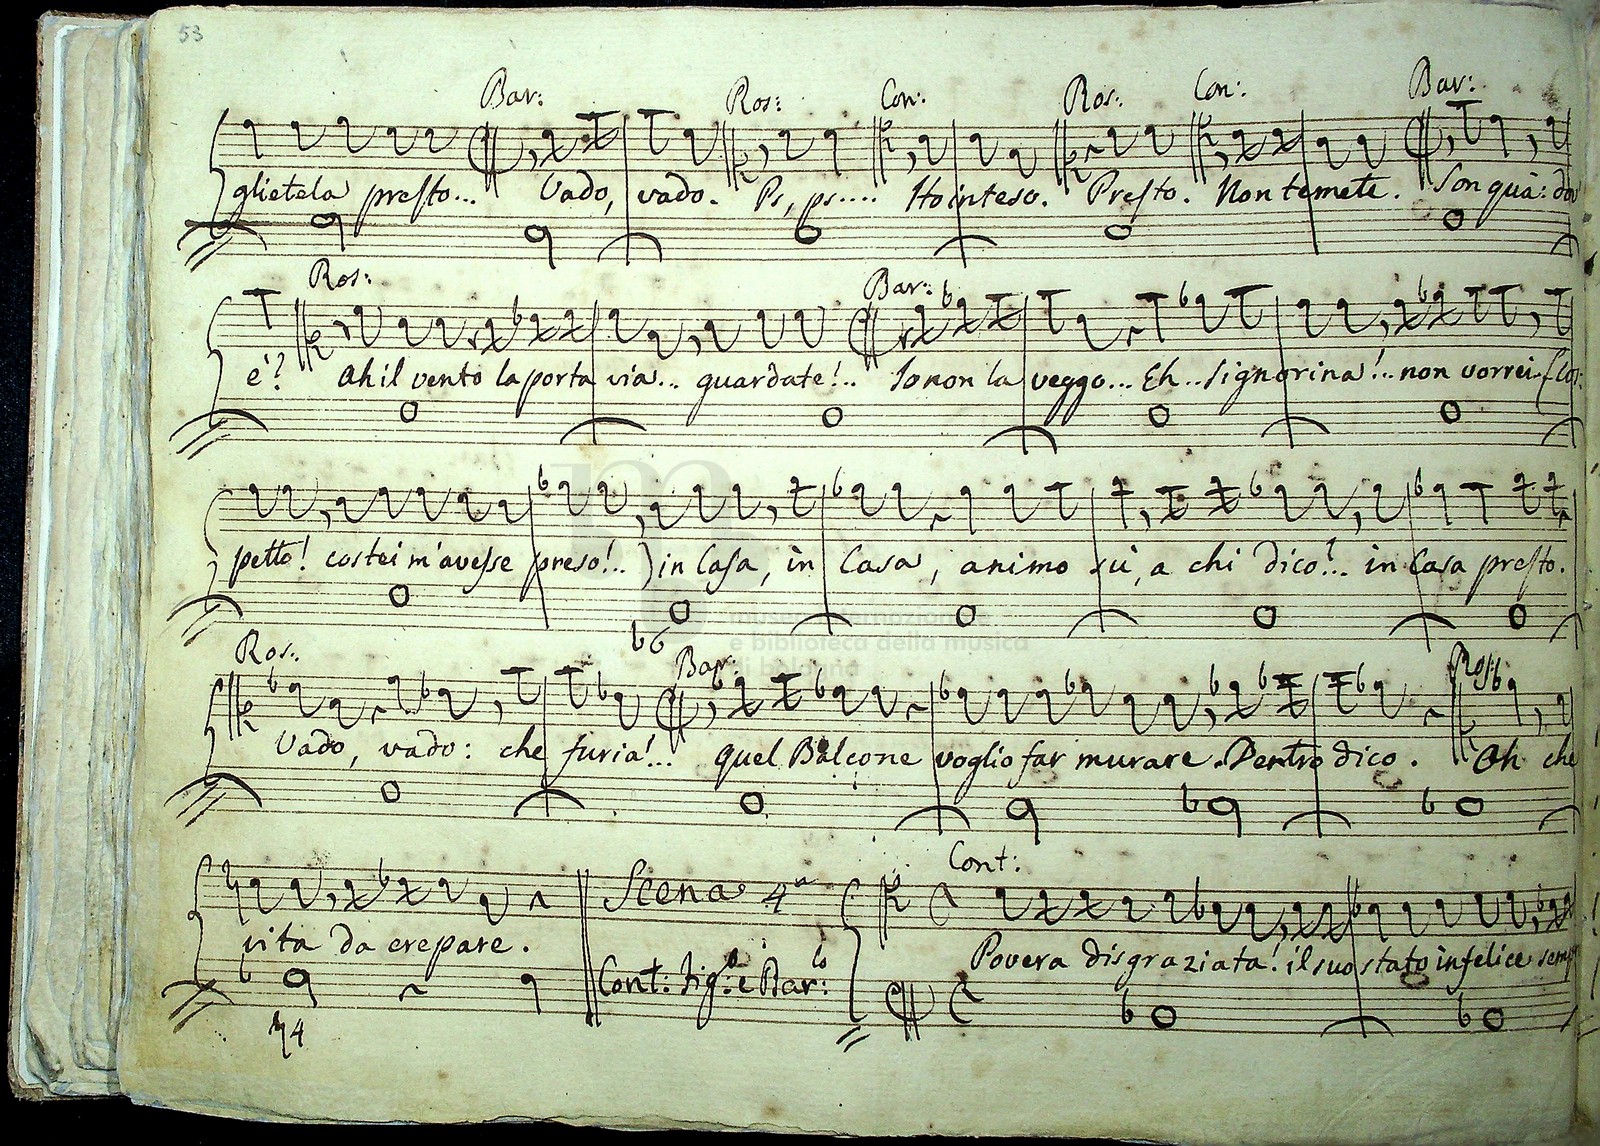 53
Bar: Ros: Con: Ros: Con: Bar:
glietela presto... Vado, vado. Ps, ps.... Ho inteso. Presto. Non temete. Son quà: dov
Ros: Bar:
è? Ah il vento la porta via... guardate!.. Io non la veggo... Eh.. signorina!.. non vorrei (Cos:
petto! costei m'avesse preso!..) in Casa, in Casa, animo sù, a chi dico?.. in Casa presto.
b6
Ros: Bar: Ros:
Vado, vado: che furia!.. quel Balcone voglio far murare. Dentro dico. Ah che
Cont:
vita da crepare. Scena 4a Povera disgraziata! il suo stato infelice semp
Cont: Fig:o e Bar:lo
4
museo internazionale
e biblioteca della musica
di bologna